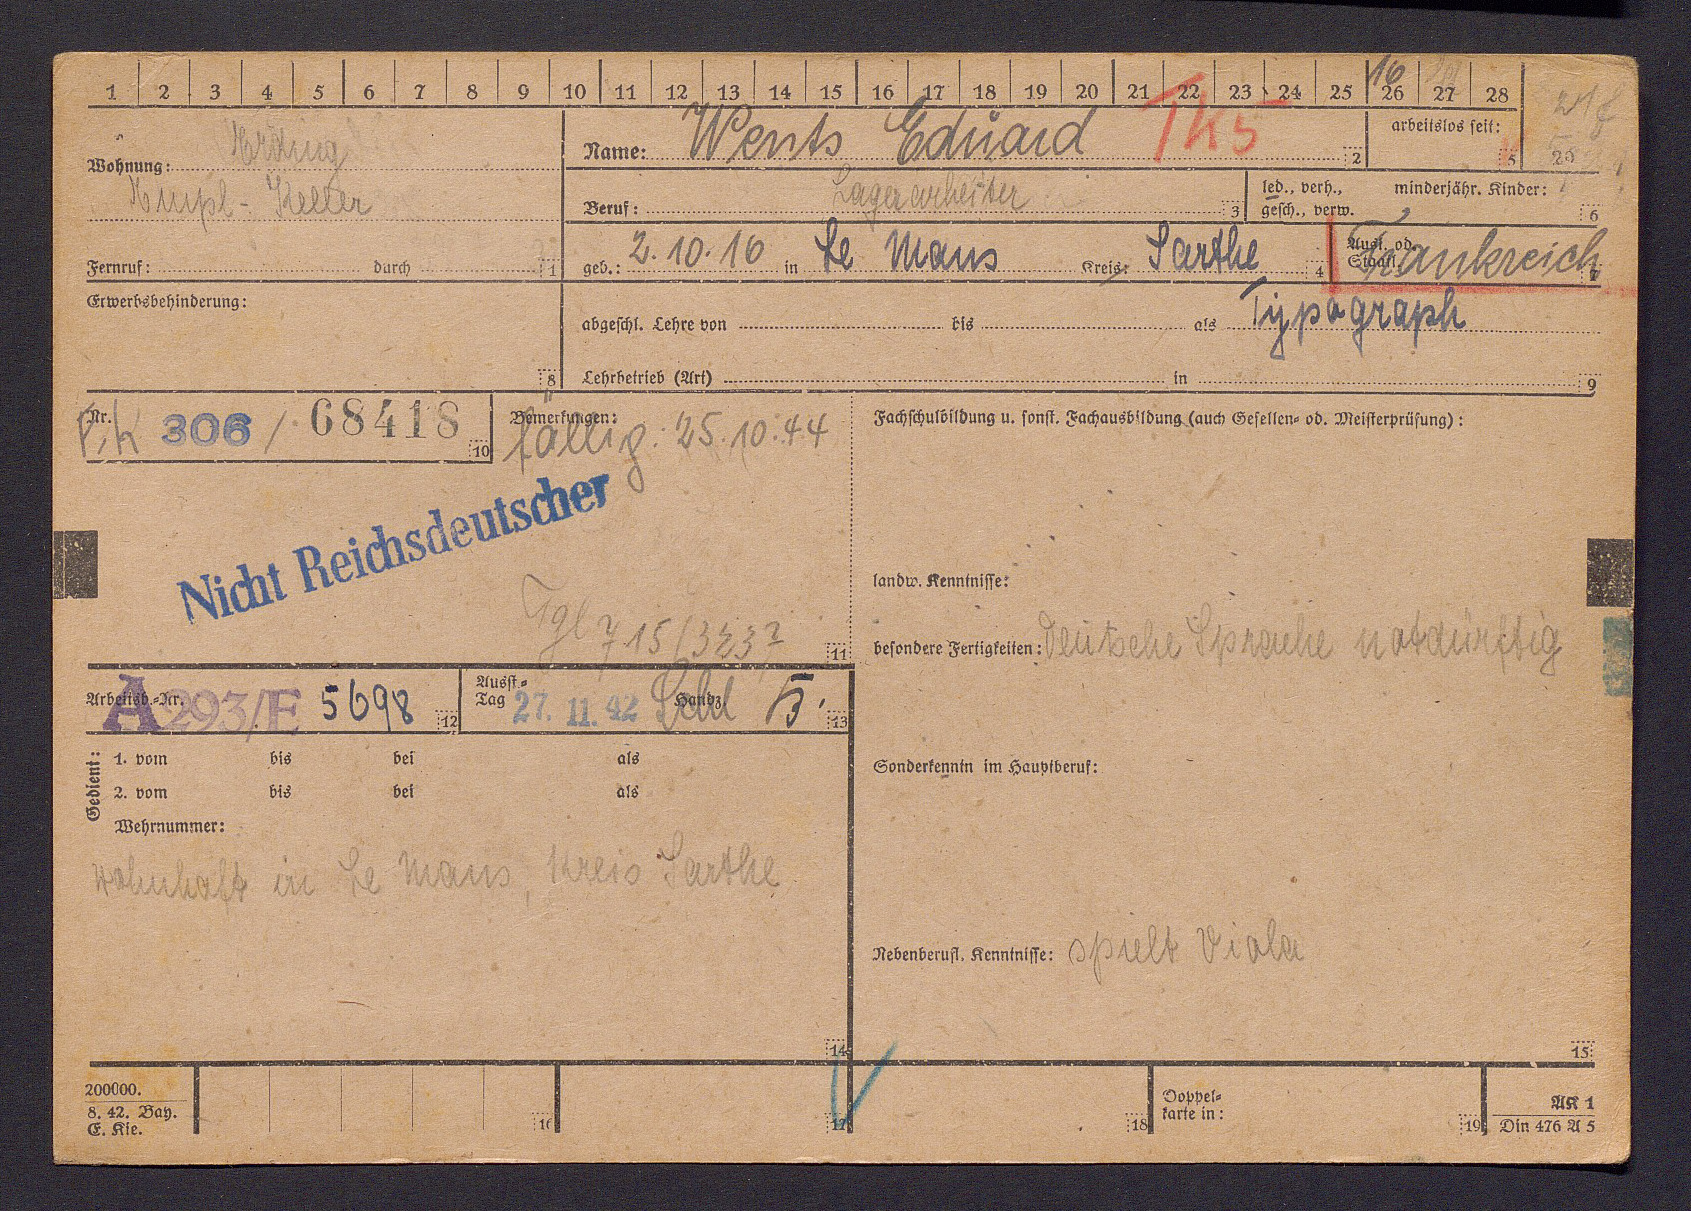 1 2 3 4 5 6 7 8 9 10 11 12 13 14 15 16 17 18 19 20 21 22 23 24 25 26 27 28
16
Wohnung: Erding
Hmpl-Keller
Fernruf: durch 1
Name: Wents Eduard 2
TK5
arbeitslos seit: 5
29
Beruf: Lagerarbeiter 3
led., verh., gesch., verw. minderjähr. Kinder: 6
geb.: 2.10.16 in Le Mans Kreis: Sarthe 4
Ausl. od. Staatl. Frankreich 7
Erwerbsbehinderung: 8
abgeschl. Lehre von bis als Typograph
Lehrbetrieb (Art) in 9
Nr. F.K 306 / 68418 10
Bemerkungen: fällig: 25.10.44
Nicht Reichsdeutscher
Tgl 715/3237 11
Fachschulbildung u. sonst. Fachausbildung (auch Gesellen- od. Meisterprüfung):
landw. Kenntnisse:
besondere Fertigkeiten: deutsche Sprache notdürftig
Arbeitsb.-Nr. A 293/E 5698 12
Ausst.-Tag 27. 11. 42 Handz. 13
Gedient:
1. vom bis bei als
2. vom bis bei als
Wehrnummer:
wohnhaft in Le Mans, Kreis Sarthe
14
Sonderkenntn im Hauptberuf:
Nebenberufl. Kenntnisse: spielt Viola
15
200000.
8. 42. Bay.
E. Kie.
16 17 18
Doppel-
karte in: 19
AK 1
Din 476 A 5